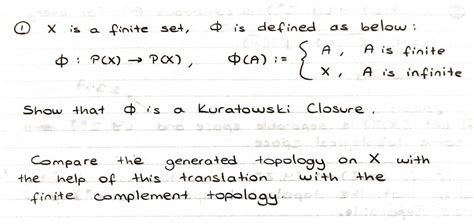 ① X is a finite set, Φ is defined as below:
Φ : P(X) → P(X), Φ(A) := { A, A is finite
X, A is infinite
Show that Φ is a Kuratowski Closure.
Compare the generated topology on X with
the help of this translation with the
finite complement topology